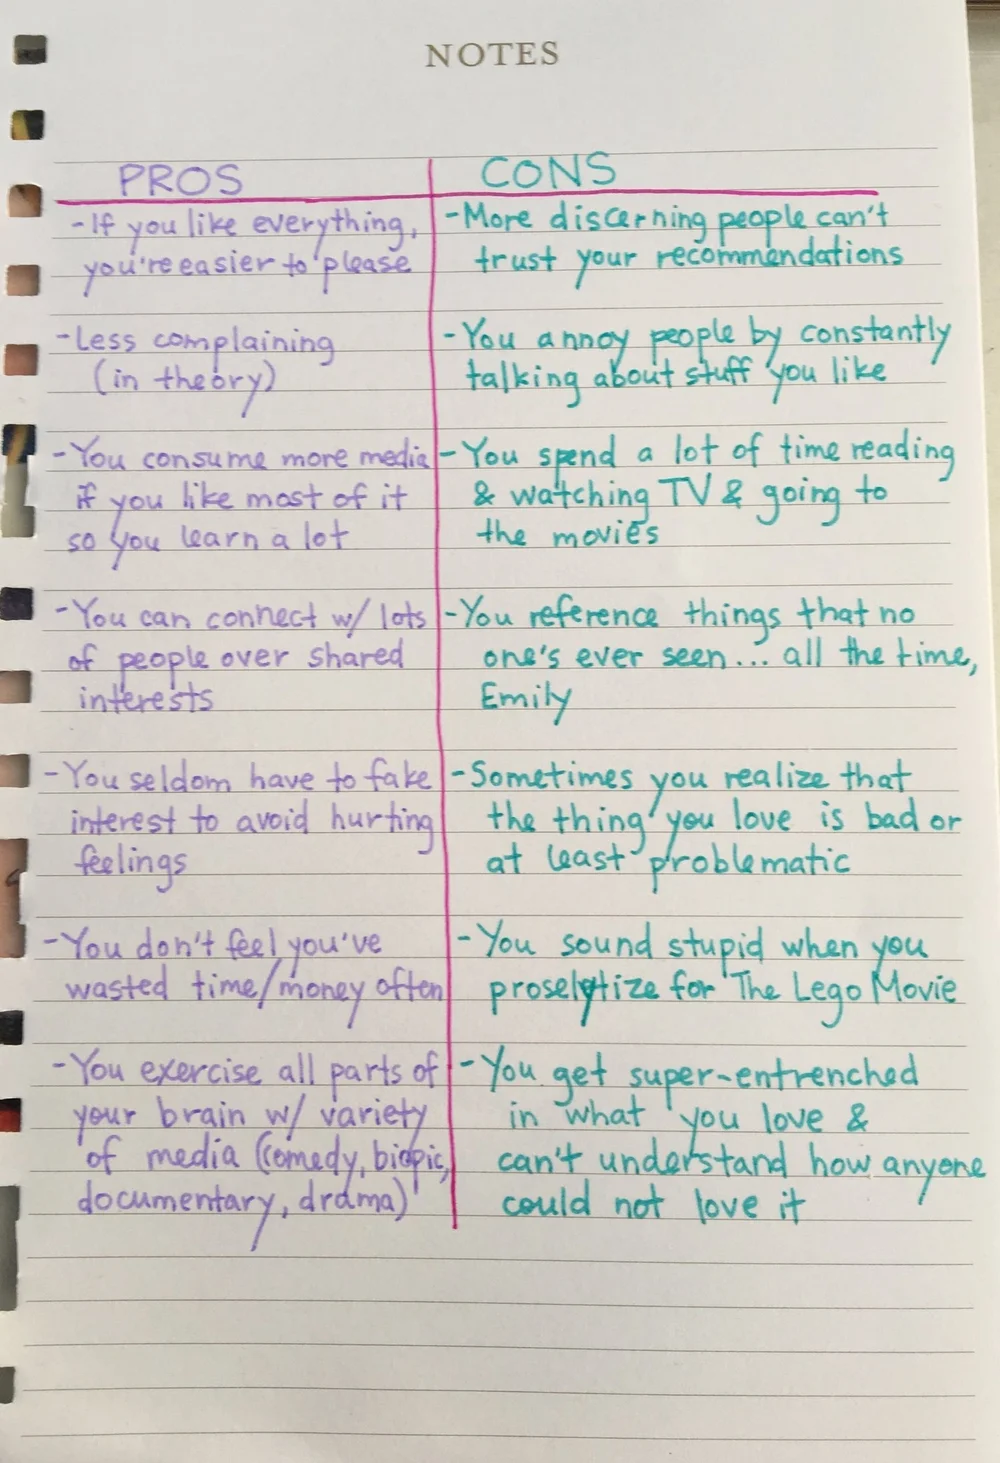 NOTES
PROS
-If you like everything,
you're easier to please
-Less complaining
(in theory)
-You consume more media
if you like most of it
so you learn a lot
-You can connect w/ lots
of people over shared
interests
-You seldom have to fake
interest to avoid hurting
feelings
-You don't feel you've
wasted time/money often
-You exercise all parts of
your brain w/ variety
of media (comedy, biopic,
documentary, drama)
CONS
-More discerning people can't
trust your recommendations
-You annoy people by constantly
talking about stuff you like
-You spend a lot of time reading
& watching TV & going to
the movies
-You reference things that no
one's ever seen... all the time,
Emily
-Sometimes you realize that
the thing you love is bad or
at least problematic
-You sound stupid when you
proselytize for The Lego Movie
-You get super-entrenched
in what you love &
can't understand how anyone
could not love it